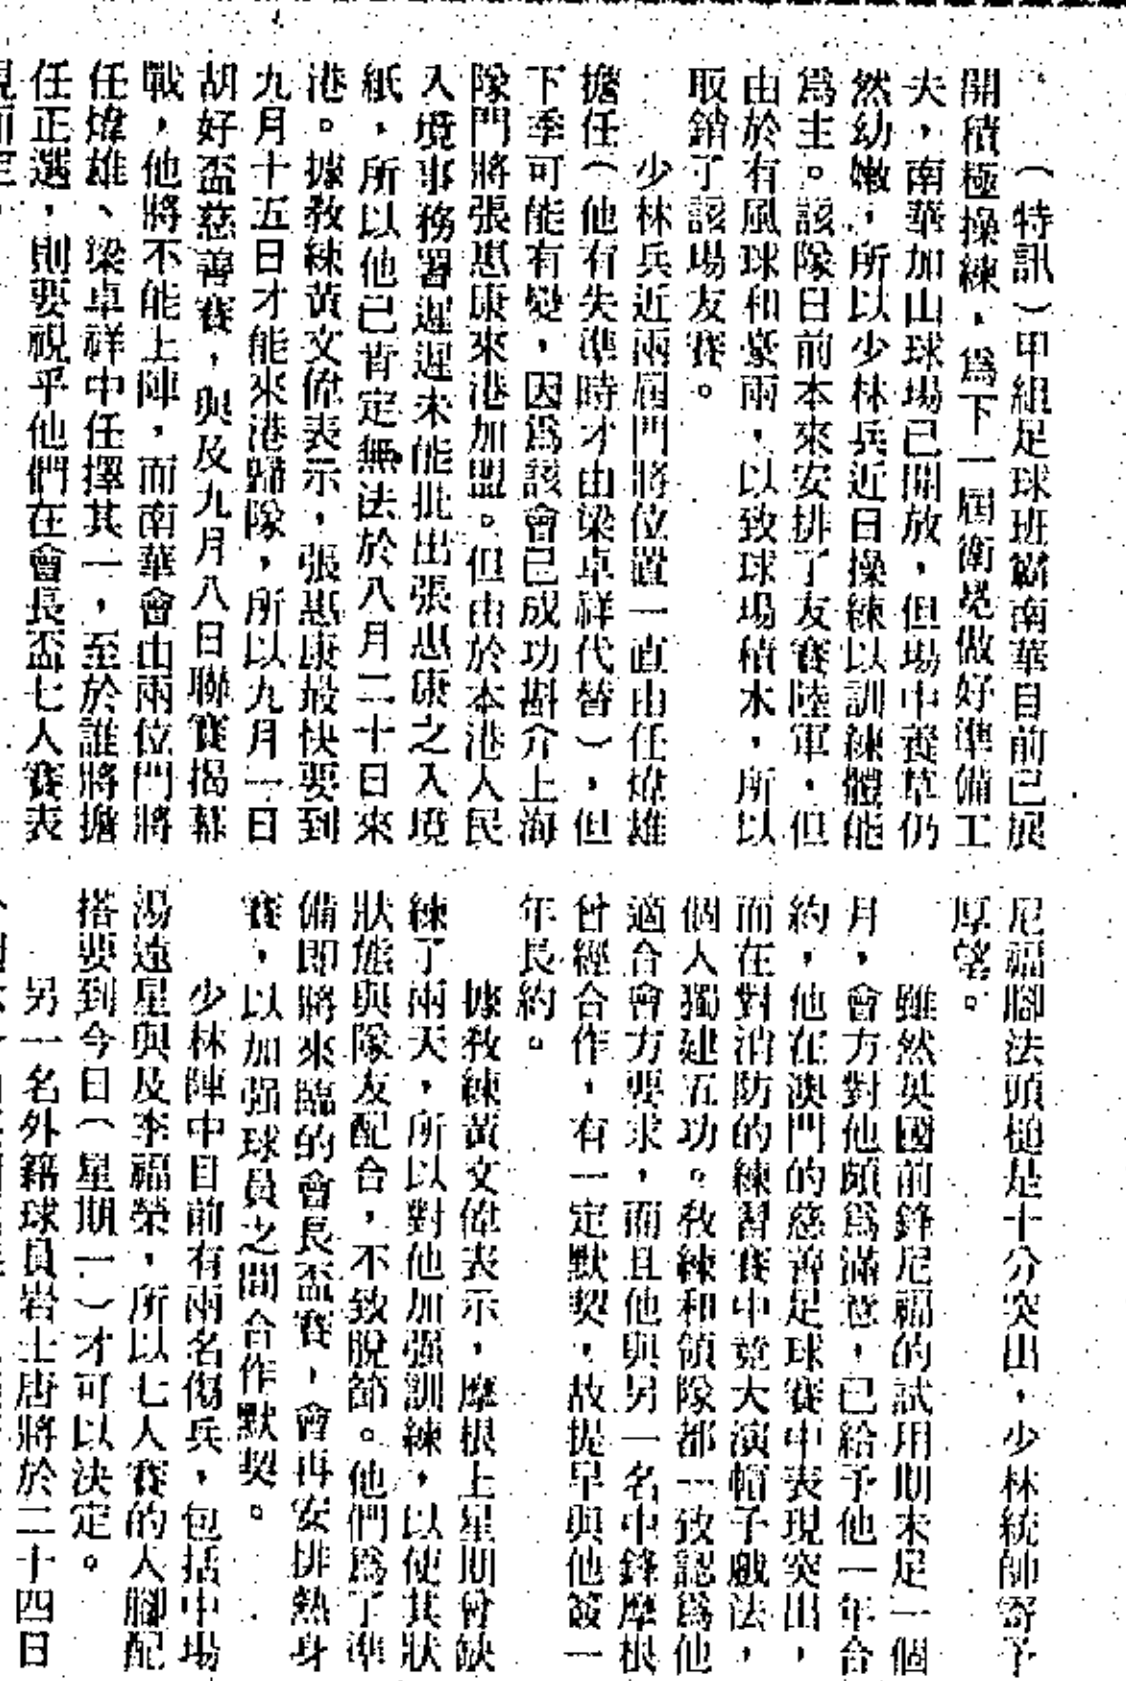 （特訊）甲組足球班霸南華目前已展
開積極操練，爲下一屆衛冕做好準備工
夫，南華加山球場已開放，但場中養草仍
然幼嫩，所以少林兵近日操練以訓練體能
爲主。該隊日前本來安排了友賽陸軍，但
由於有風球和豪雨，以致球場積水，所以
取銷了該場友賽。
少林兵近兩屆門將位置一直由任煒雄
擔任（他有失準時才由梁卓祥代替），但
下季可能有變，因爲該會已成功斟介上海
隊門將張惠康來港加盟。但由於本港人民
入境事務署遲遲未能批出張惠康之入境
紙，所以他已肯定無法於八月二十日來
港。據教練黃文偉表示，張惠康最快要到
九月十五日才能來港歸隊，所以九月一日
胡好盃慈善賽，與及九月八日聯賽揭幕
戰，他將不能上陣，而南華會由兩位門將
任煒雄、梁卓祥中任擇其一，至於誰將擔
任正選，則要視乎他們在會長盃七人賽表
現而定。
尼福腳法頭槌是十分突出，少林統帥寄予
厚望。
雖然英國前鋒尼福的試用期未足一個
月，會方對他頗爲滿意，已給予他一年合
約，他在澳門的慈善足球賽中表現突出，
而在對消防的練習賽中竟大演帽子戲法，
個人獨建五功。教練和領隊都一致認爲他
適合會方要求，而且他與另一名中鋒摩根
曾經合作，有一定默契，故提早與他簽一
年長約。
據教練黃文偉表示，摩根上星期曾缺
練了兩天，所以對他加强訓練，以使其狀
狀態與隊友配合，不致脫節。他們爲了準
備即將來臨的會長盃賽，會再安排熱身
賽，以加强球員之間合作默契。
少林陣中目前有兩名傷兵，包括中場
湯遠星與及李福榮，所以七人賽的人腳配
搭要到今日（星期一）才可以決定。
另一名外籍球員岩士唐將於二十四日